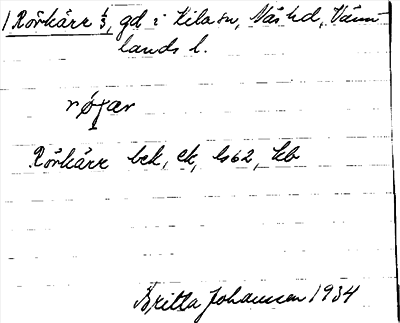 1 Rörkärr 1/3, gd i Kila sn, Näs hd, Värm
lands l.
Rörkärr bek, ek, ls62, kb
Britta Johansson 1934